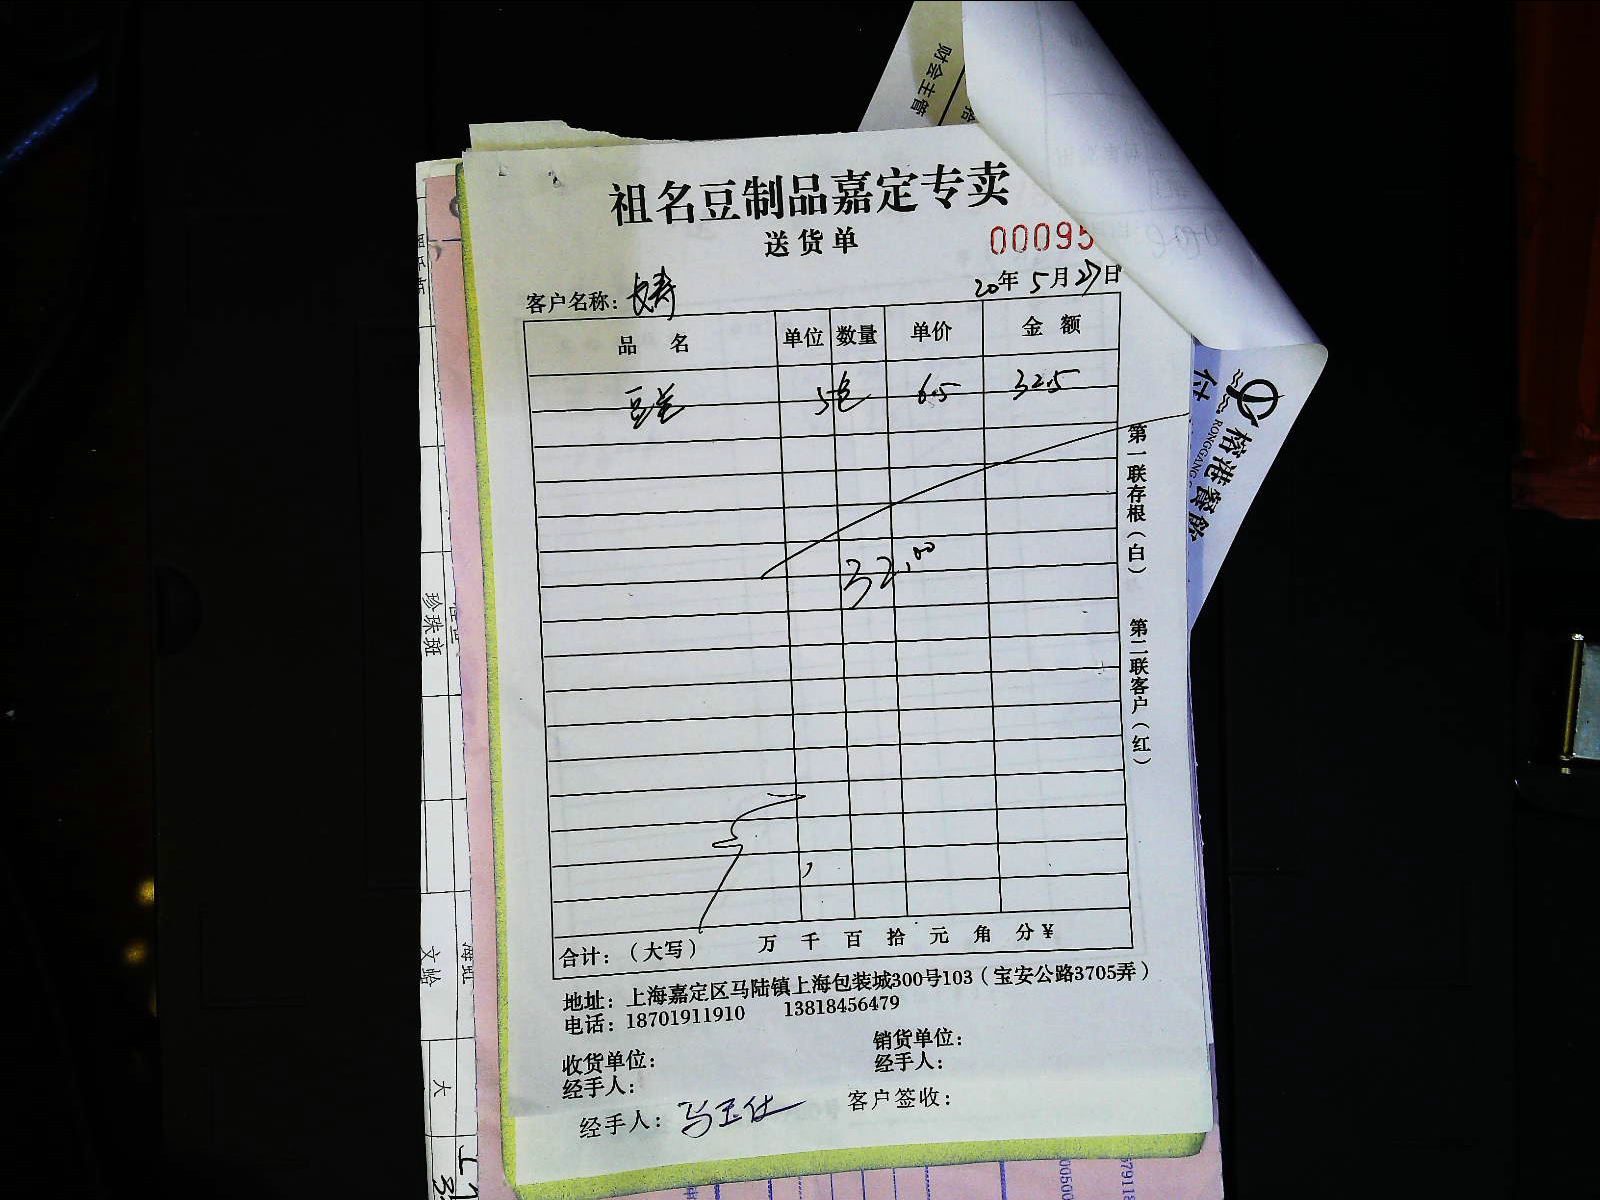 财会主管
祖名豆制品嘉定专卖
送货单
00095
客户名称：长寿
20年5月27日
品名 单位 数量 单价 金额
5包 6.5 32.5
32.00
合计：（大写） 万 千 百 拾 元 角 分 ¥
地址：上海嘉定区马陆镇上海包装城300号103（宝安公路3705弄）
电话：18701911910 13818456479
收货单位：
经手人：
销货单位：
经手人：
经手人：马玉仕
客户签收：
第一联存根（白）
第二联客户（红）
付
榕港餐飲
RONGGANG
珍珠斑
文蛤
海虹
大